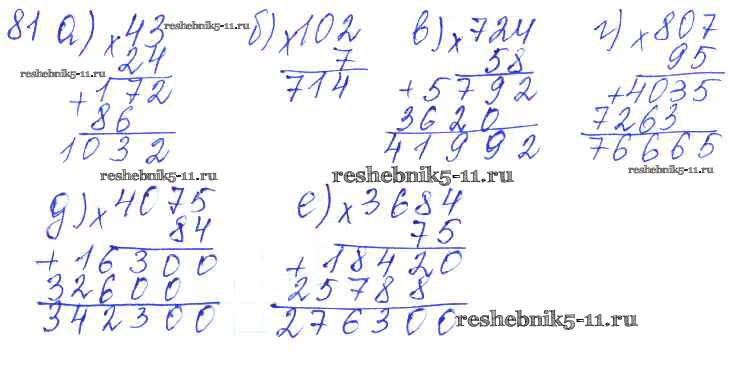 81 а) × 43 reshebnik5-11.ru б) × 102 в) × 724 г) × 807
24 7 58 95
reshebnik5-11.ru
+ 172 714 + 5792 + 4035
86 3620 7263
1032 41992 76665
reshebnik5-11.ru reshebnik5-11.ru reshebnik5-11.ru
д) × 4075 е) × 3684
84 75
+ 16300 + 18420
32600 25788
342300 276300 reshebnik5-11.ru